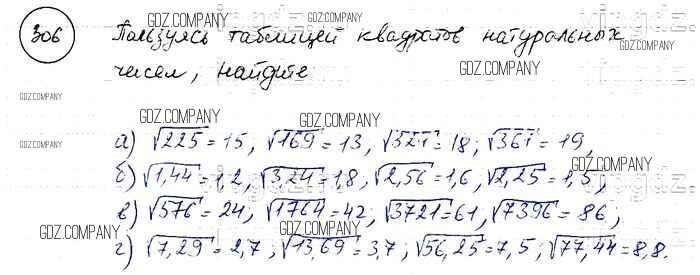 306 Пользуясь таблицей квадратов натуральных
чисел, найдите
а) √225 = 15, √169 = 13, √321 = 18; √361 = 19,
б) √1,44 = 1,2, √3,24 = 1,8, √2,56 = 1,6, √2,25 = 1,5,
в) √576 = 24, √1764 = 42, √3721 = 61, √7396 = 86;
г) √7,29 = 2,7; √13,69 = 3,7, √56,25 = 7,5; √77,44 = 8,8.
GDZ.COMPANY
GDZ.COMPANY
GDZ.COMPANY
GDZ.COMPANY
GDZ.COMPANY
GDZ.COMPANY
GDZ.COMPANY
GDZ.COMPANY
GDZ.COMPANY
GDZ.COMPANY
GDZ.COMPANY